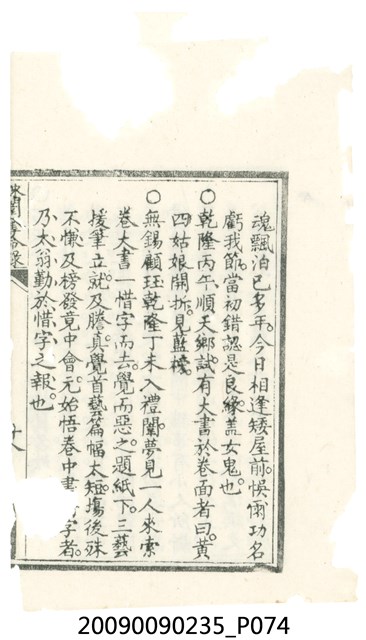 魂飄泊已多年。今日相逢矮屋前。悞爾功名
虧我節。當初錯認是良緣。蓋女鬼也。
○乾隆丙午。順天鄉試。有大書於卷面者曰。黃
四姑娘開拆。見藍榜。
○無錫顧珏乾隆丁未入禮闈。夢見一人來索
卷大書一惜字而去。覺而惡之。題紙下。三藝
援筆立就。及謄真。覺首藝篇幅太短。塲後殊
不慊。及榜發。竟中會元。始悟卷中書 字者。
乃太翁勤於惜字之報也。
20090090235_P074